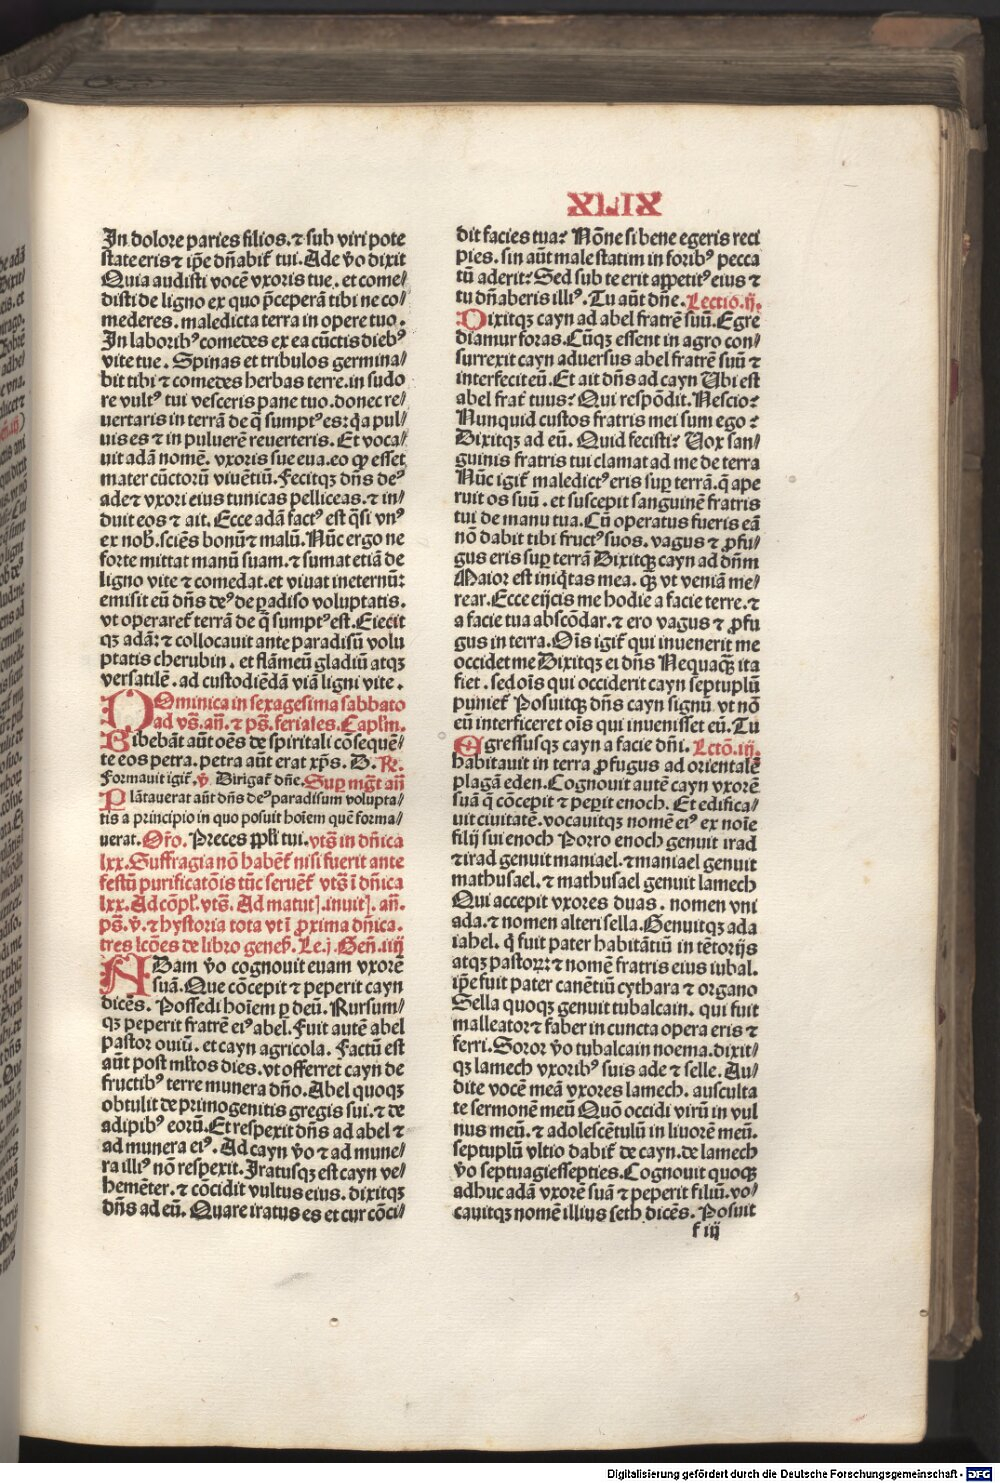 XLIX
In dolore paries filios.⁊ sub viri pote
state eris ⁊ ip̄e dn̄abit᷑ tui. Ade v̊o dixit
Quia audisti vocē vxoris tue. et come⸗
disti de ligno ex quo p̄ceperā tibi ne co⸗
mederes. maledicta terra in opere tuo.
In laboribꝰ comedes ex ea cūctis diebꝰ
vite tue. Spinas et tribulos germina⸗
bit tibi ⁊ comedes herbas terre. in sudo
re vultꝰ tui vesceris pane tuo. donec re⸗
uertaris in terrā de q̄ sumptꝰ es: qa pul⸗
uis es ⁊ in puluerē reuerteris. Et voca⸗
uit adā nomē. vxoris sue eua. eo ꝙ esset
mater cūctorū viuētiū. Fecitqꝫ dn̄s de⸗
ade ⁊ vxori eius tunicas pelliceas. ⁊ in⸗
duit eos ⁊ ait. Ecce adā factꝰ est q̄si vnꝰ
ex nob̄. sciēs bonū ⁊ malū. Nūc ergo ne
forte mittat manū suam. ⁊ sumat etiā de
ligno vite ⁊ comedat. et viuat ineternū:
emisit eū dn̄s deꝰ de ꝑadiso voluptatis.
vt operaret᷑ terrā de q̄ sumptꝰ est. Eiecit
qꝫ adā: ⁊ collocauit ante paradisū volu
ptatis cherubin. et flāmeū gladiū atqꝫ
versatilē. ad custodiēdā viā ligni vite.
DOminica in sexagesima sabbato
ad vs̄. an̄. ⁊ ps̄. feriales. Capl̄m.
Bibebāt aūt oēs de spiritali cōsequē⸗
te eos petra. petra aūt erat xp̄s. D. ℞.
Formauit igit᷑. v̊. Dirigat᷑ dn̄e. Suꝑ mḡt an̄
Plātauerat aūt dn̄s deꝰ paradisum volupta⸗
tis a principio in quo posuit hoīem quē forma⸗
uerat. Or̄o. Preces pp̄li tui. vts̄ in dn̄ica
lxx. Suffragia nō habēt᷑ nisi fuerit ante
festū purificatōis tūc seruēt᷑ vts̄ ī dn̄ica
lxx. Ad cōpl̄. vts̄. Ad matuṫ. inuiṫ. an̄.
ps̄. v̊. ⁊ hystoria tota vt ī ꝓxima dn̄ica.
tres lc̄ōes de libro geneß. Le.j. Gen̄. iiij
ADam v̊o cognouit euam vxorē
suā. Que cōcepit ⁊ peperit cayn
dicēs. Possedi hoīem ꝑ deū. Rursum⸗
qꝫ peperit fratrē eiꝰ abel. Fuit autē abel
pastor ouiū. et cayn agricola. Factū est
aūt post ml̄tos dies. vt offerret cayn de
fructibꝰ terre munera dn̄o. Abel quoqꝫ
obtulit de primogenitis gregis sui. ⁊ de
adipibꝰ eorū. Et respexit dn̄s ad abel ⁊
ad munera eiꝰ. Ad cayn v̊o ⁊ ad mune⸗
ra illiꝰ nō respexit. Iratusqꝫ est cayn ve⸗
hemēter. ⁊ cōcidit vultus eius. dixitqꝫ
dn̄s ad eū. Quare iratus es et cur cōci⸗
dit facies tua? Nōne si bene egeris reci
pies. sin aūt male statim in foribꝰ pecca
tū aderit? Sed sub te erit appetitꝰ eius ⁊
tu dn̄aberis illiꝰ. Tu aūt dn̄e. Lectio. ij.
Dixitqꝫ cayn ad abel fratrē suū. Egre
diamur foras. Cūqꝫ essent in agro con⸗
surrexit cayn aduersus abel fratrē suū ⁊
interfecit eū. Et ait dn̄s ad cayn Ubi est
abel frat᷑ tuus? Qui respōdit. Nescio?
Nunquid custos fratris mei sum ego?
Dixitqꝫ ad eū. Quid fecisti? Uox san⸗
guinis fratris tui clamat ad me de terra
Nūc igit᷑ maledictꝰ eris suꝑ terrā. q̄ ape
ruit os suū. et suscepit sanguinē fratris
tui de manu tua. Cū operatus fueris eā
nō dabit tibi fructꝰ suos. vagus ⁊ ꝓfu⸗
gus eris suꝑ terrā Dixitqꝫ cayn ad dn̄m
Maior est iniq̇tas mea. qꝫ vt veniā me⸗
rear. Ecce eijcis me hodie a facie terre. ⁊
a facie tua abscōdar. ⁊ ero vagus ⁊ ꝓfu
gus in terra. Oīs igit᷑ qui inuenerit me
occidet me Dixitqꝫ ei dn̄s Nequaqꝫ ita
fiet. sed oīs qui occiderit cayn septuplū
puniet᷑ Posuitqꝫ dn̄s cayn signū. vt nō
eū interficeret oīs qui inuenisset eū. Tu
Egressusqꝫ cayn a facie dn̄i. Lctō. iij.
habitauit in terra ꝓfugus ad orientalē
plagā eden. Cognouit autē cayn vxorē
suā q̄ cōcepit ⁊ peꝑit enoch. Et edifica⸗
uit ciuitatē. vocauitqꝫ nomē eiꝰ ex noīe
filij sui enoch Porro enoch genuit irad
⁊ irad genuit maniael. ⁊ maniael genuit
mathusael. ⁊ mathusael genuit lamech
Qui accepit vxores duas. nomen vni
ada. ⁊ nomen alteri sella. Genuitqꝫ ada
iabel. q̇ fuit pater habitātiū in tētorijs
atqꝫ pastoꝝ: ⁊ nomē fratris eius iubal.
ip̄e fuit pater canētiū cythara ⁊ organo
Sella quoqꝫ genuit tubalcain. qui fuit
malleator ⁊ faber in cuncta opera eris ⁊
ferri. Soror v̊o tubalcain noema. dixit⸗
qꝫ lamech vxoribꝰ suis ade ⁊ selle. Au⸗
dite vocē meā vxores lamech. ausculta
te sermonē meū Quō occidi virū in vul
nus meū. ⁊ adolescētulū in liuorē meū.
septuplū vltio dabit᷑ de cayn. de lamech
v̊o septuagiessepties. Cognouit quoqꝫ
adhuc adā vxorē suā ⁊ peperit filiū. vo⸗
cauitqꝫ nomē illius seth dicēs. Posuit
f iij
Digitalisierung gefördert durch die Deutsche Forschungsgemeinschaft - DFG